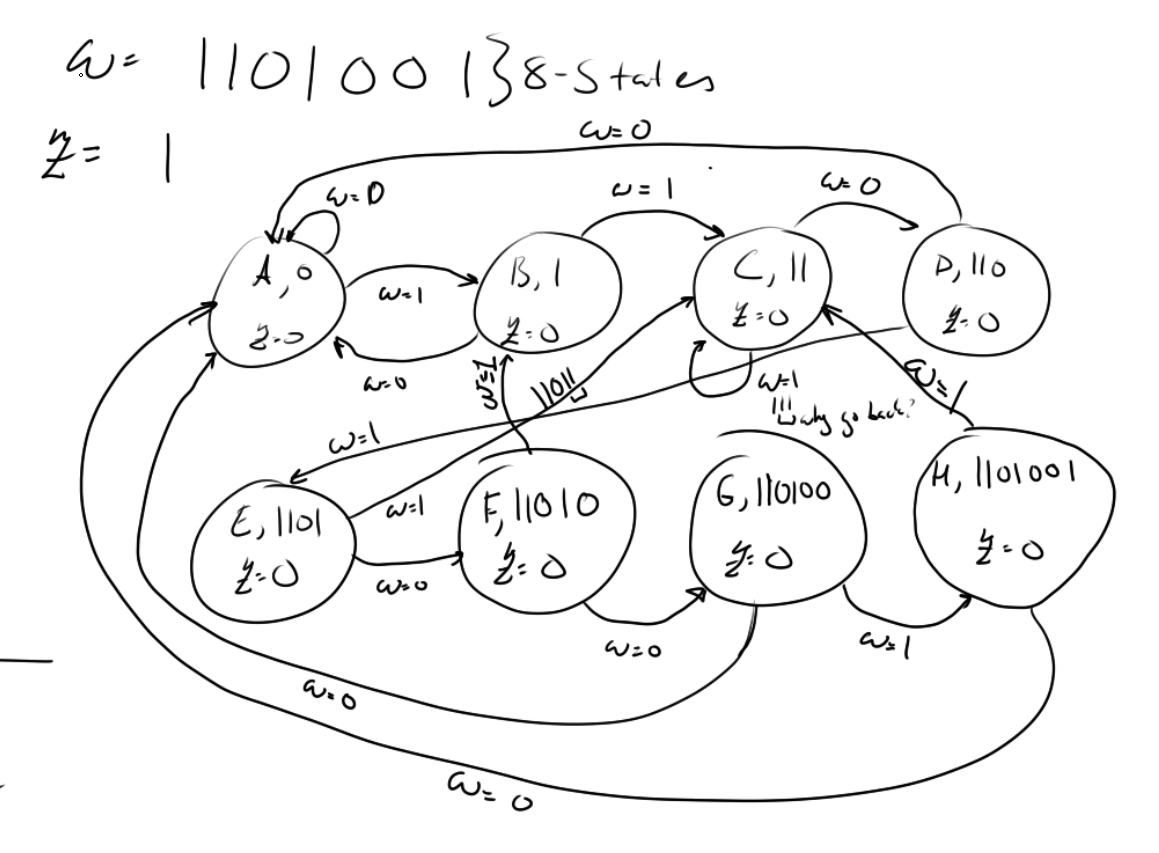 w= 1101001}8-States
z= 1
w=0
w=0
w=1
w=0
A, 0
z=0
B, 1
z=0
C, 11
z=0
D, 110
z=0
w=1
w=0
w=1
11011
w=1
111 why go back?
w=1
w=1
E, 1101
z=0
w=1
w=0
F, 11010
z=0
G, 110100
z=0
H, 1101001
z=0
w=0
w=1
w=0
w=0